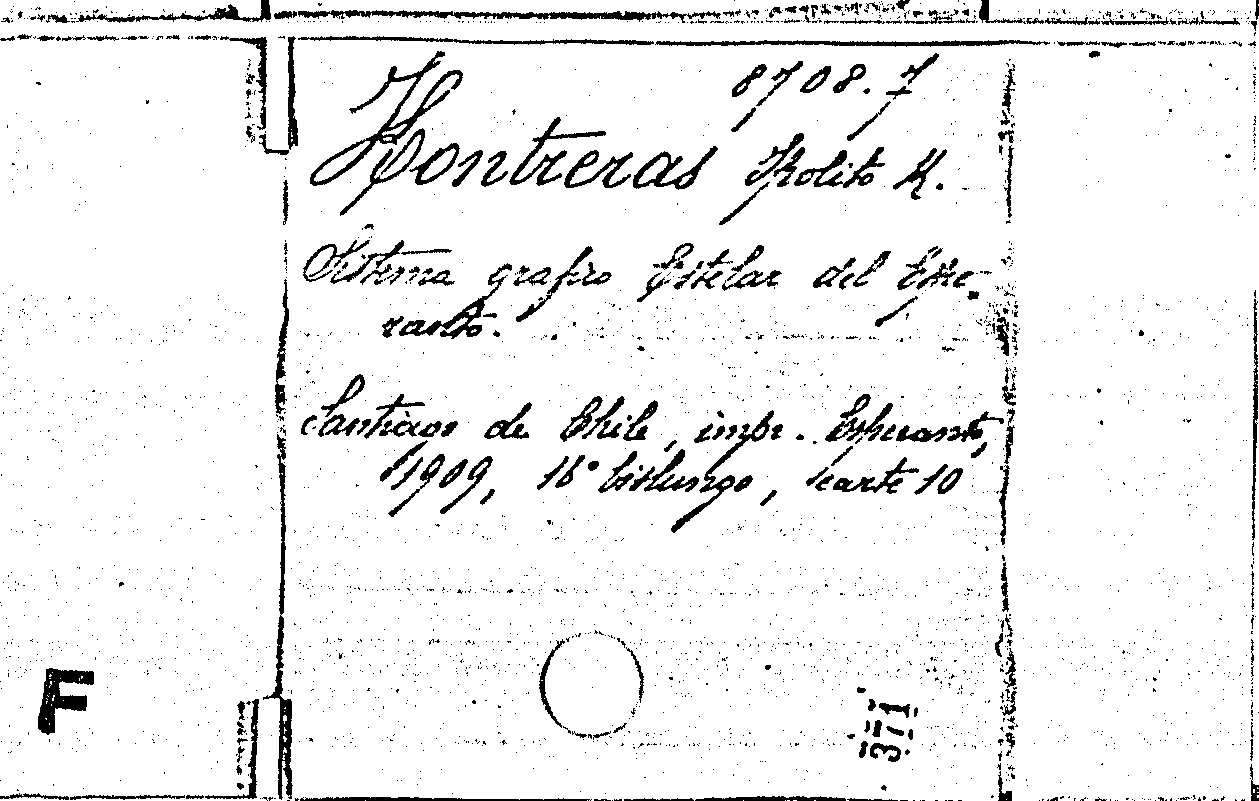 8708.7
Kontreras Ipolito K.
Sistema grafico Estelar del Espe-
ranto.
Santiago de Chile, impr. Esperanto,
1909, 16° bislungo, carte 10
F
371